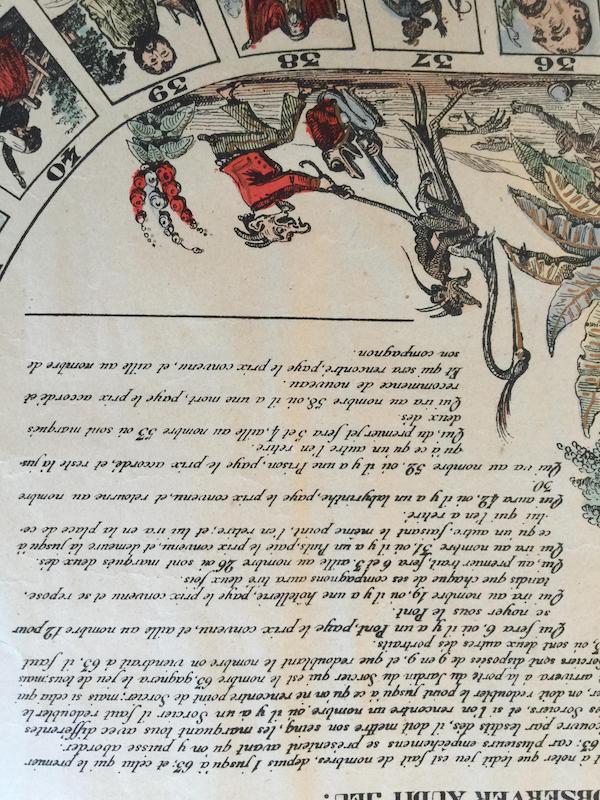 OBSERVER AUDIT JEU.
a noter que ledit jeu est fait de nombres, depuis 1 jusqu'à 63; et celui qui le premier
63: car plusieurs empêchemens se présentent avant qu'on y puisse aborder.
couvert par lesdits dés, il doit mettre son seing, les marquant tous avec différentes
des Sorciers, et si l'on rencontre un nombre où il y a un Sorcier il faut redoubler le
er, on doit redoubler le point jusqu'à ce qu'on ne rencontre point de Sorcier; mais si celui qui
arrivera à la porte du Jardin du Sorcier qui est le nombre 63, gagnera le jeu de tous; mais
Sorciers sont disposées de 9 en 9, et que redoublant le nombre on viendrait à 63, il faut
3, où sont deux autres des portraits.
Qui fera 6, où il y a un Pont, paye le prix convenu, et aille au nombre 12 pour
se noyer sous le Pont.
Qui ira au nombre 19, où il y a une hôtellerie, paye le prix convenu et se repose,
tandis que chaque de ses compagnons aura tiré deux fois.
Qui, au premier trait, fera 6 et 3 aille au nombre 26 où sont marqués deux dés.
Qui ira au nombre 31, où il y a un Puits, paie le prix convenu, et demeure là jusqu'à
ce qu'un autre faisant le même point, l'en retire; et lui ira en la place de ce-
lui qui l'en a retiré.
Qui aura 42, où il y a un labyrinthe, paye le prix convenu, et retourne au nombre
30.
Qui ira au nombre 52, où il y a une Prison, paye le prix accordé, et reste là jus-
qu'à ce qu'un autre l'en retire.
Qui du premier jet fera 5 et 4, aille au nombre 53 où sont marqués
deux dés.
Qui ira au nombre 58, où il a une mort, paye le prix accordé et
recommence de nouveau.
Et qui sera rencontré, paye le prix convenu, et aille au nombre de
son compagnon.
36
37
38
39
40